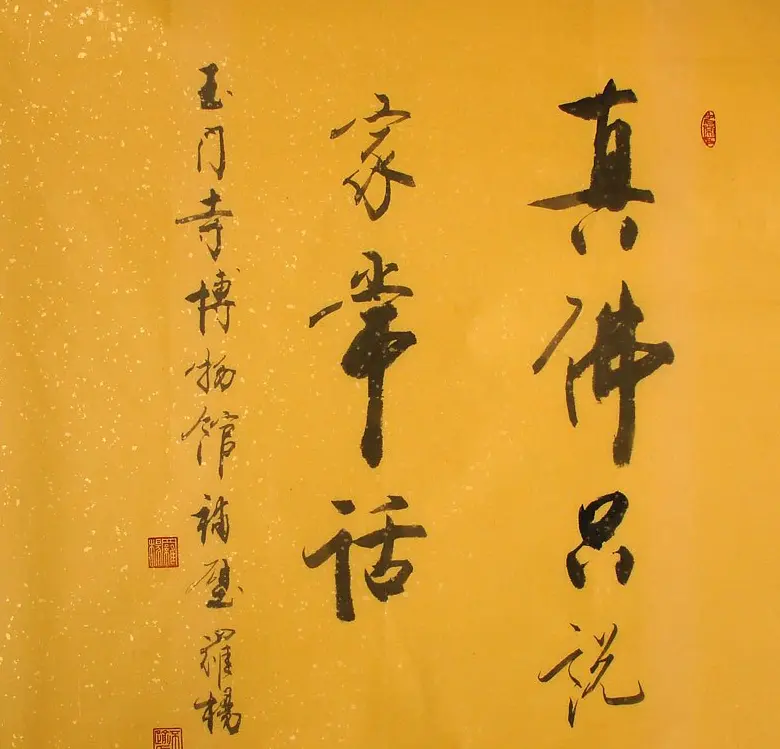 真佛只说
家常话
玉门寺博物馆补壁 罗杨